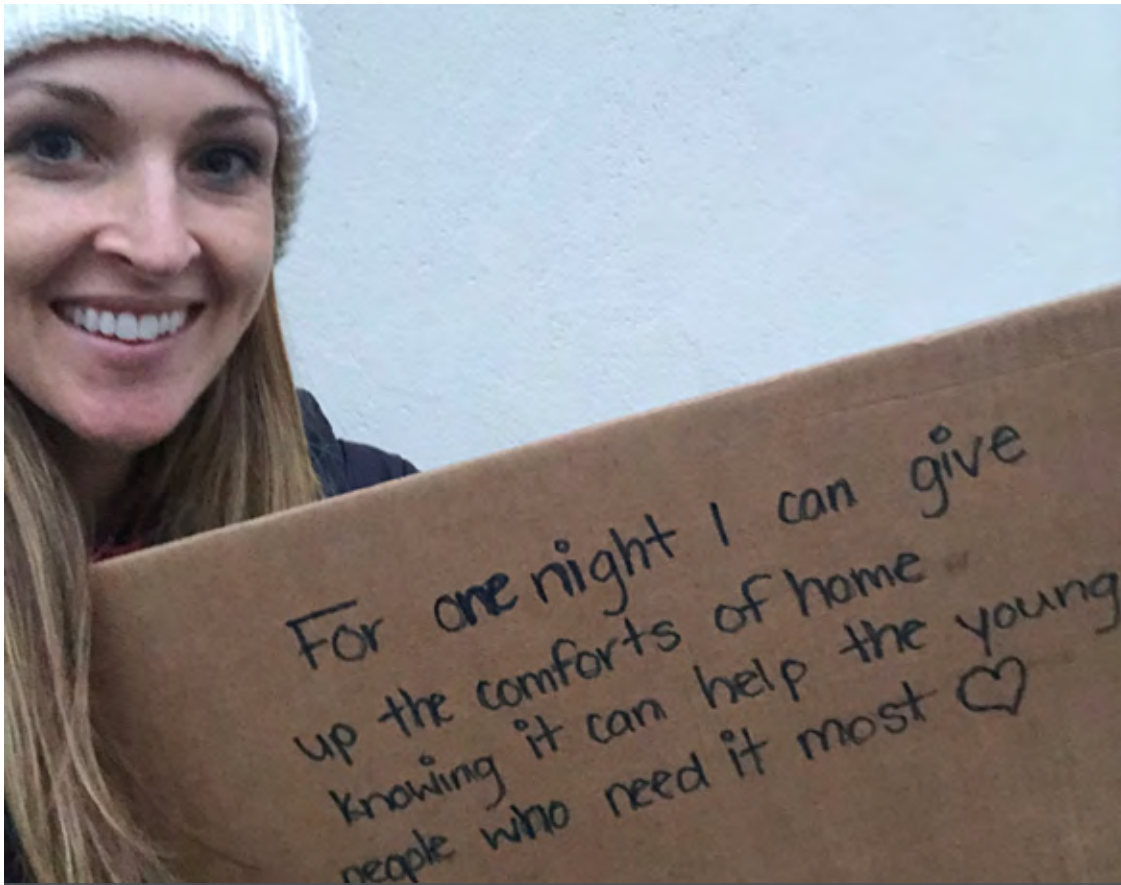 For one night I can give
up the comforts of home
knowing it can help the young
people who need it most ♡